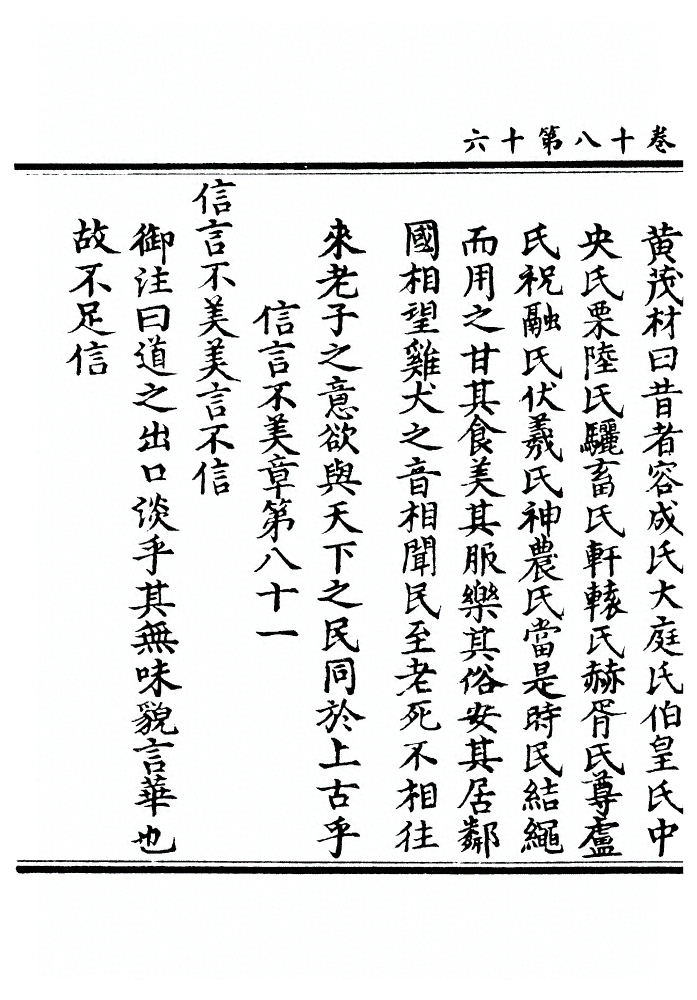 卷十八第十六
黄茂材曰昔者容成氏大庭氏伯皇氏中
央氏栗陸氏驪畜氏軒轅氏赫胥氏尊盧
氏祝融氏伏羲氏神農氏當是時民結繩
而用之甘其食美其服樂其俗安其居鄰
國相望雞犬之音相聞民至老死不相往
來老子之意欲與天下之民同於上古乎
信言不美章第八十一
信言不美美言不信
御注曰道之出口淡乎其無味貌言華也
故不足信